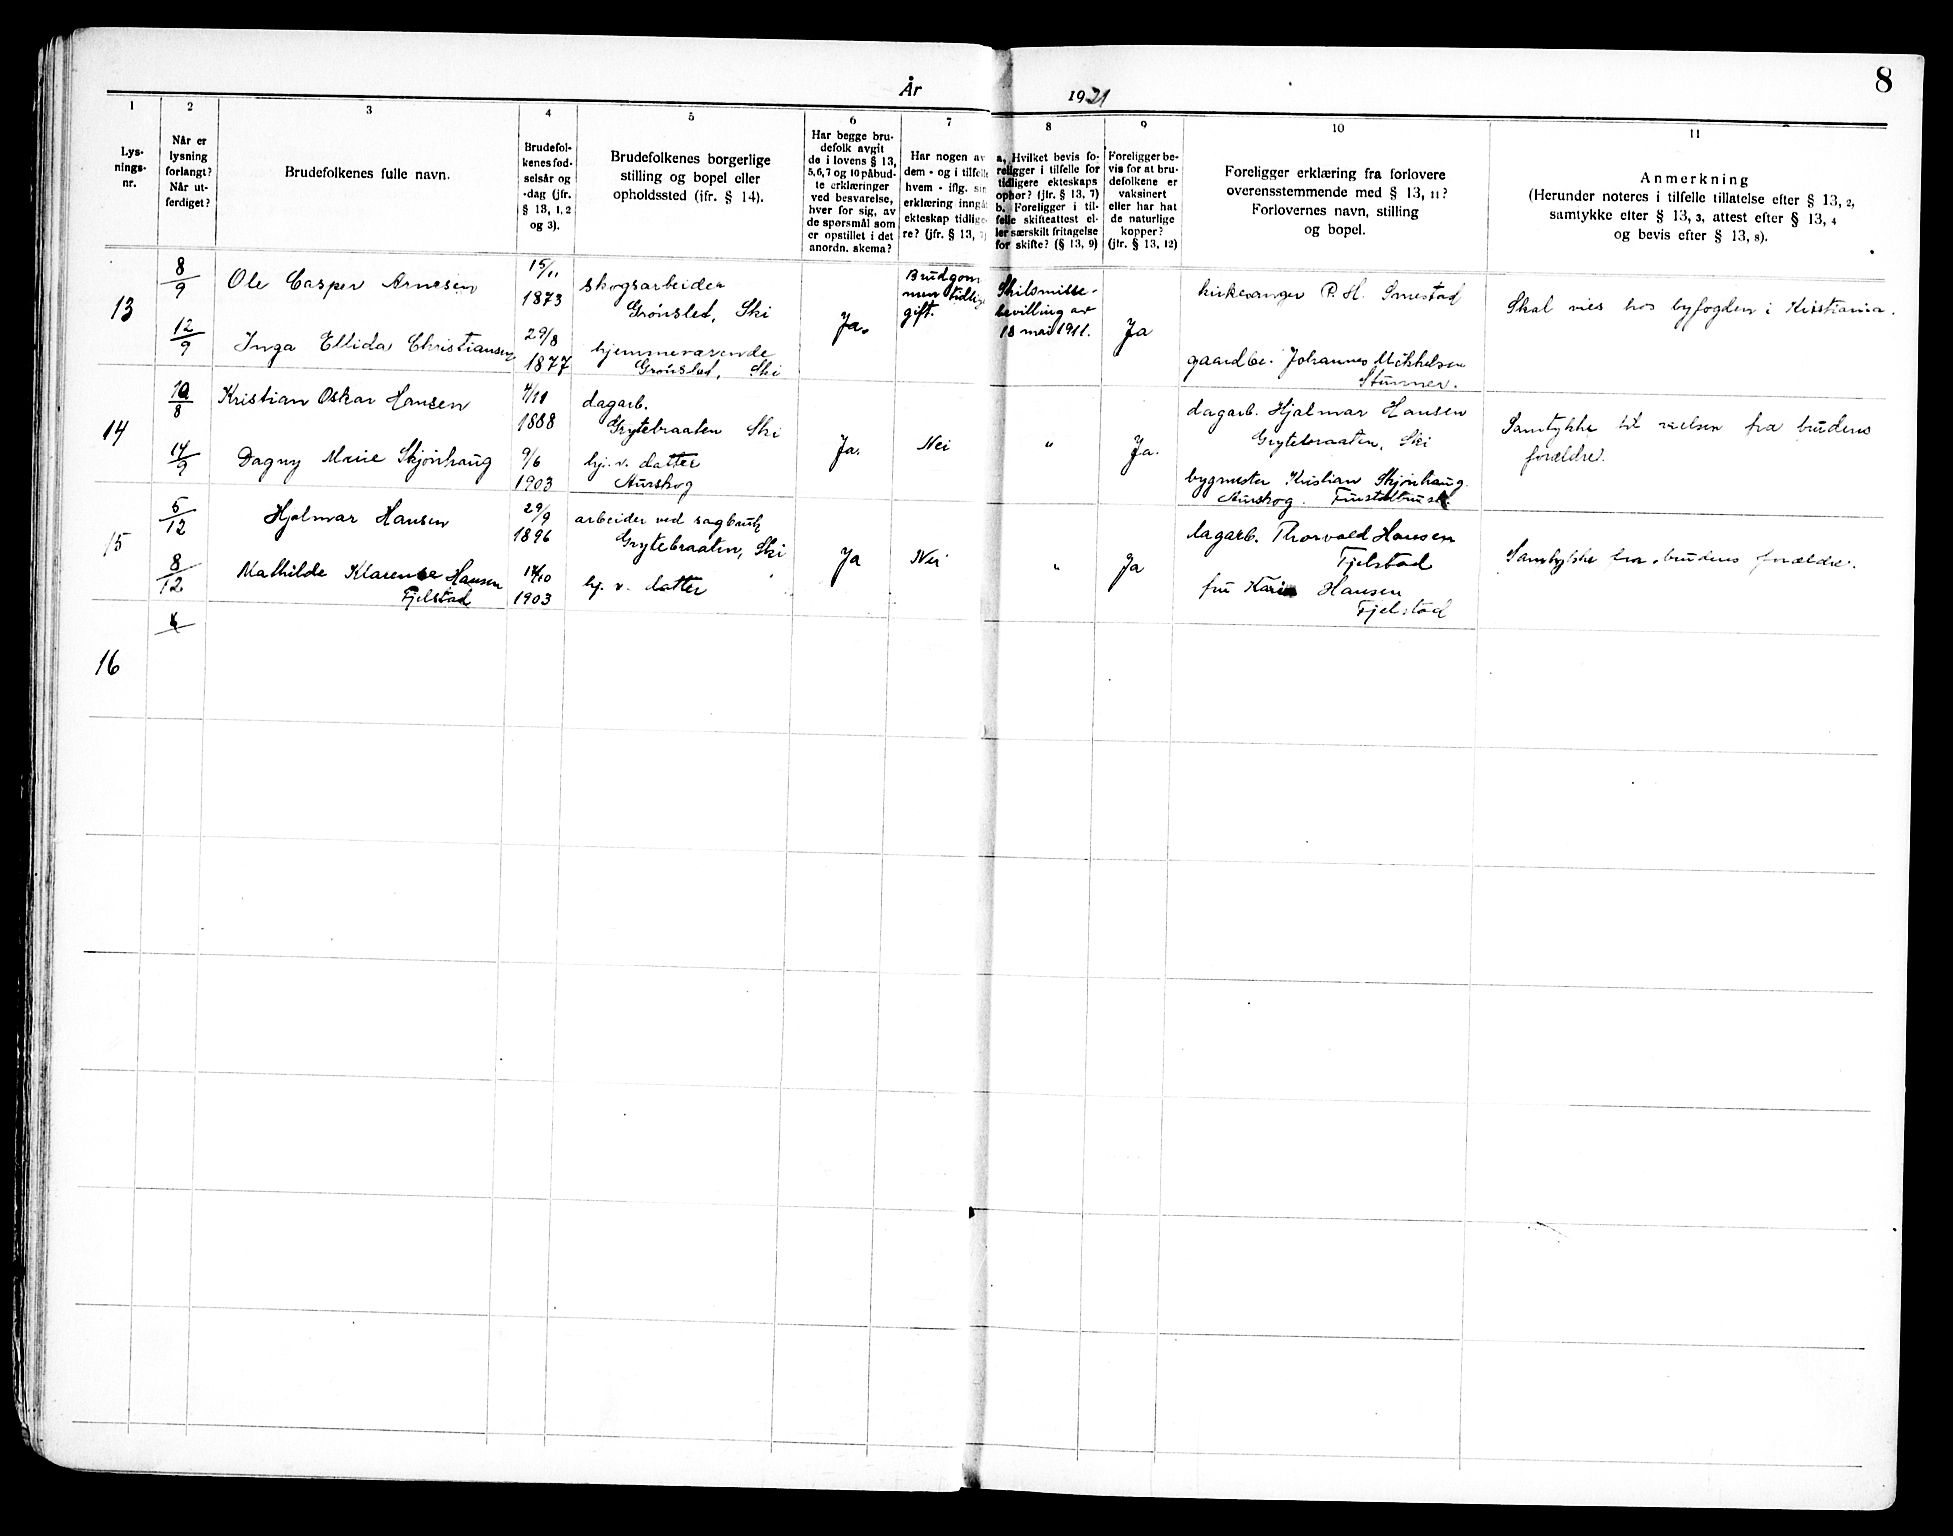 8
År 1921
1
2
3
4
5
6
7
8
9
10
11
Lys-
nings-
nr.
Når er
lysning
forlangt?
Når ut-
ferdiget?
Brudefolkenes fulle navn.
Brudefol-
kenes fød-
selsår og
-dag (jfr.
§ 13, 1, 2
og 3).
Brudefolkenes borgerlige
stilling og bopel eller
opholdssted (jfr. § 14).
Har begge bru-
defolk avgit
de i lovens § 13,
5, 6, 7 og 10 påbud-
te erklæringer
ved besvarelse,
hver for sig, av
de spørsmål som
er opstillet i det
anordn. skema?
Har nogen av
dem - og i tilfelle
hvem - iflg. sin
erklæring inngå
ekteskap tidlige-
re? (jfr. § 13, 7)
a. Hvilket bevis fo-
religger i tilfelle for
tidligere ekteskaps
ophør? (jfr. § 13, 7)
b. Foreligger i til-
felle skifteattest el-
ler særskilt fritagelse
for skifte? (§ 13, 9)
Foreligger be-
vis for at bru-
defolkene er
vaksinert
eller har hat
de naturlige
kopper?
(jfr. § 13, 12)
Foreligger erklæring fra forlovere
overensstemmende med § 13, 11?
Forlovernes navn, stilling
og bopel.
Anmerkning
(Herunder noteres i tilfelle tillatelse efter § 13, 2,
samtykke efter § 13, 3, attest efter § 13, 4
og bevis efter § 13, 8).
13
8/9
12/9
Ole Casper Arnesen
Inga Ellida Christiansen
15/11
1873
29/8
1877
skogsarbeider
Grønsled, Ski
hjemmeværende
Grønsled, Ski
Ja.
Brudgom
men tidlig
gift.
Skilsmisse-
bevilling av
18 mai 1911.
Ja
kirkesanger P. H. Smestad
gaardbr. Johannes Mikkelsen
Stunner.
Skal vies hos byfogden i Kristiania.
14
10/8
14/9
Kristian Oskar Hansen
Dagny Marie Skjønhaug
4/11
1888
9/6
1903
dagarb.
Grytebraaten Ski
hj. v. datter
Aurskog
Ja.
Nei
"
Ja.
dagarb. Hjalmar Hansen
Grytebraaten, Ski
bygmester Kristian Skjønhaug.
Aurskog.
Samtykke til vielsen fra brudens
forældre.
15
5/12
8/12
Hjalmar Hansen
Mathilde Klarense Hansen
Fjelstad
29/9
1896
14/10
1903
arbeider ved sagbruk
Grytebraaten, Ski
hj. v. datter
Ja
Nei
"
Ja
dagarb. Thorvald Hansen
Fjelstad
fru Karin Hansen
Fjelstad
Samtykke fra brudens forældre.
16